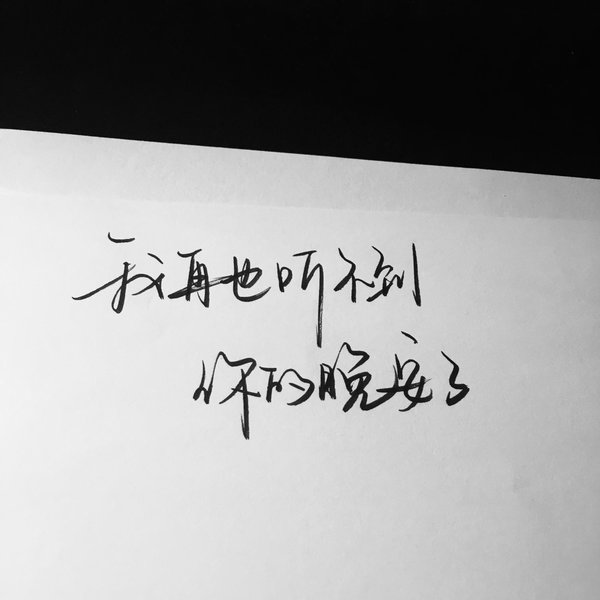 我再也听不到
你的晚安了